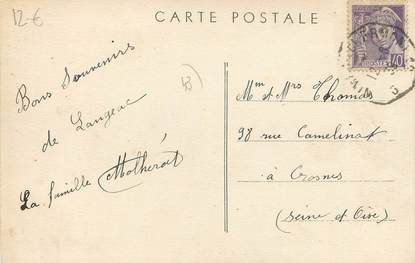 12-€
CARTE POSTALE
Bons Souvenirs
de Langeac
La famille Molherat
Mm et Mrs Thomas
98 rue Camelinat
à Crosnes
(Seine et Oise)
POSTES 40